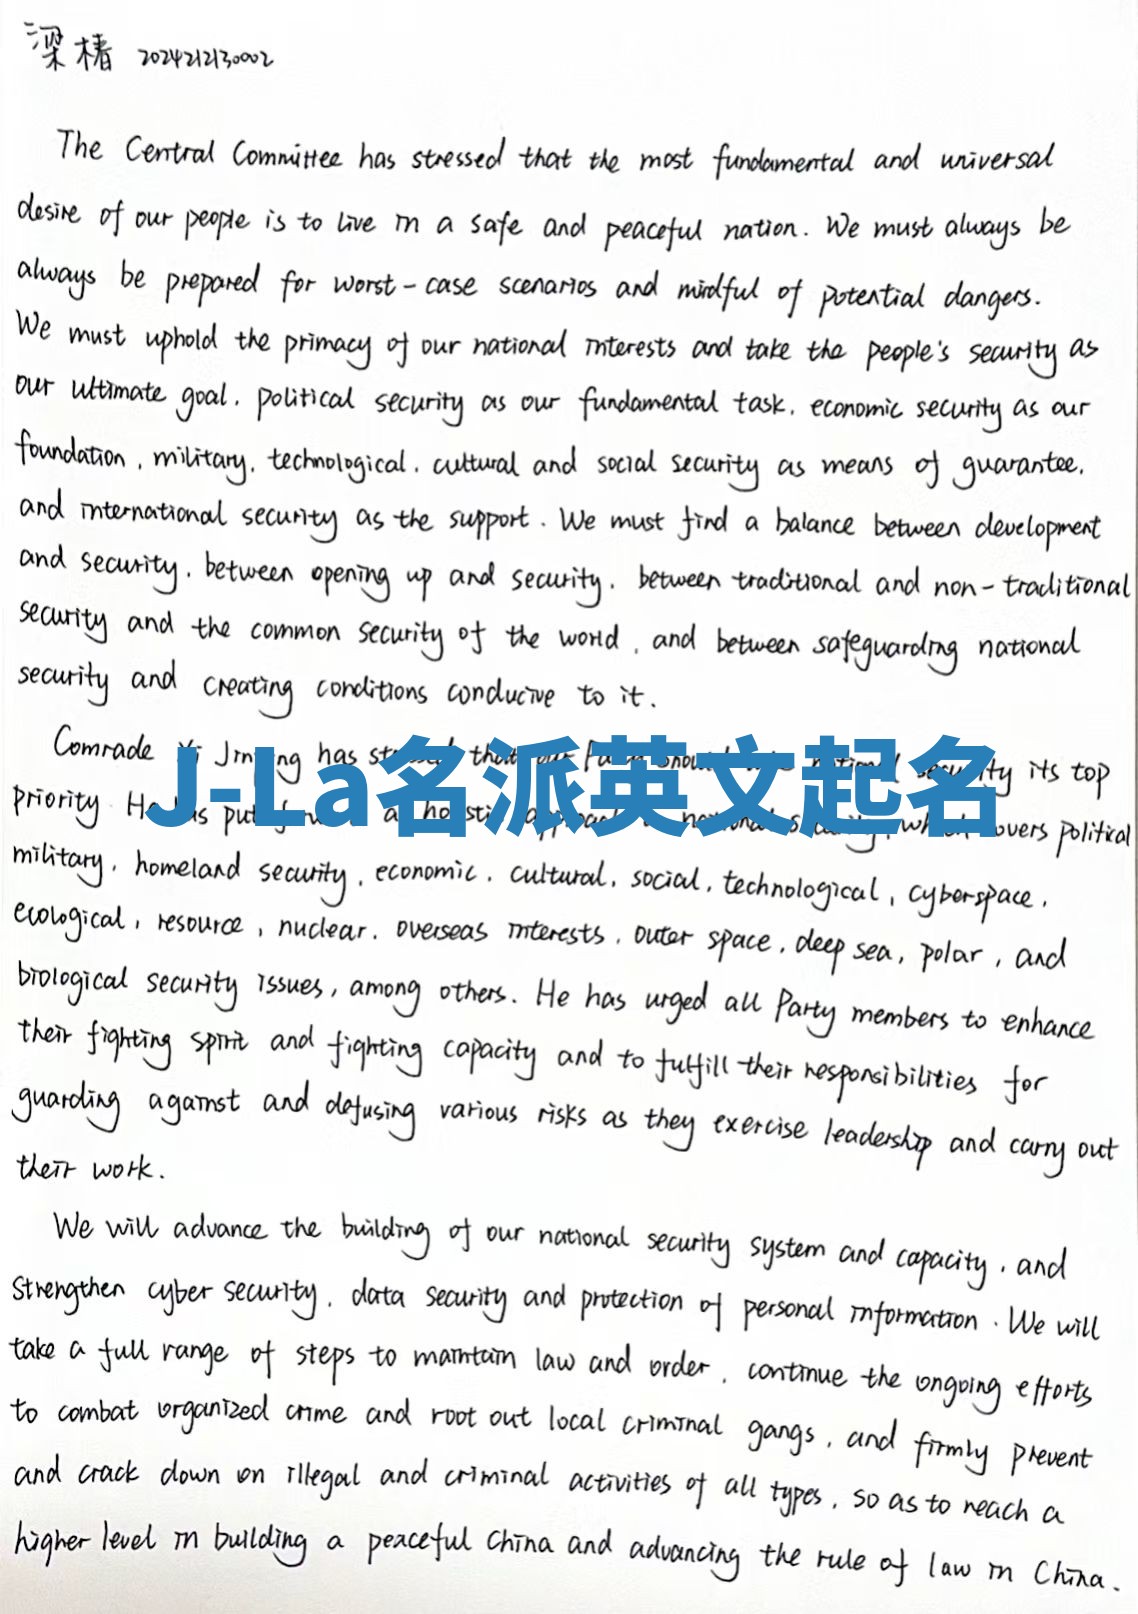 梁椿 2024212130002
The Central Committee has stressed that the most fundamental and universal
desire of our people is to live in a safe and peaceful nation. We must always be
always be prepared for worst-case scenarios and mindful of potential dangers.
We must uphold the primacy of our national interests and take the people's security as
our ultimate goal, political security as our fundamental task, economic security as our
foundation, military, technological, cultural and social security as means of guarantee,
and international security as the support. We must find a balance between development
and security, between opening up and security, between traditional and non-traditional
security and the common security of the world, and between safeguarding national
security and creating conditions conducive to it.
Comrade has that its top
J-La名派英文起名
priority. put political
military, homeland security, economic, cultural, social, technological, cyberspace,
ecological, resource, nuclear, overseas interests, outer space, deep sea, polar, and
biological security issues, among others. He has urged all Party members to enhance
their fighting spirit and fighting capacity and to fulfill their responsibilities for
guarding against and defusing various risks as they exercise leadership and carry out
their work.
We will advance the building of our national security system and capacity, and
strengthen cyber security, data security and protection of personal information. We will
take a full range of steps to maintain law and order, continue the ongoing efforts
to combat organized crime and root out local criminal gangs, and firmly prevent
and crack down on illegal and criminal activities of all types, so as to reach a
higher level in building a peaceful China and advancing the rule of law in China.